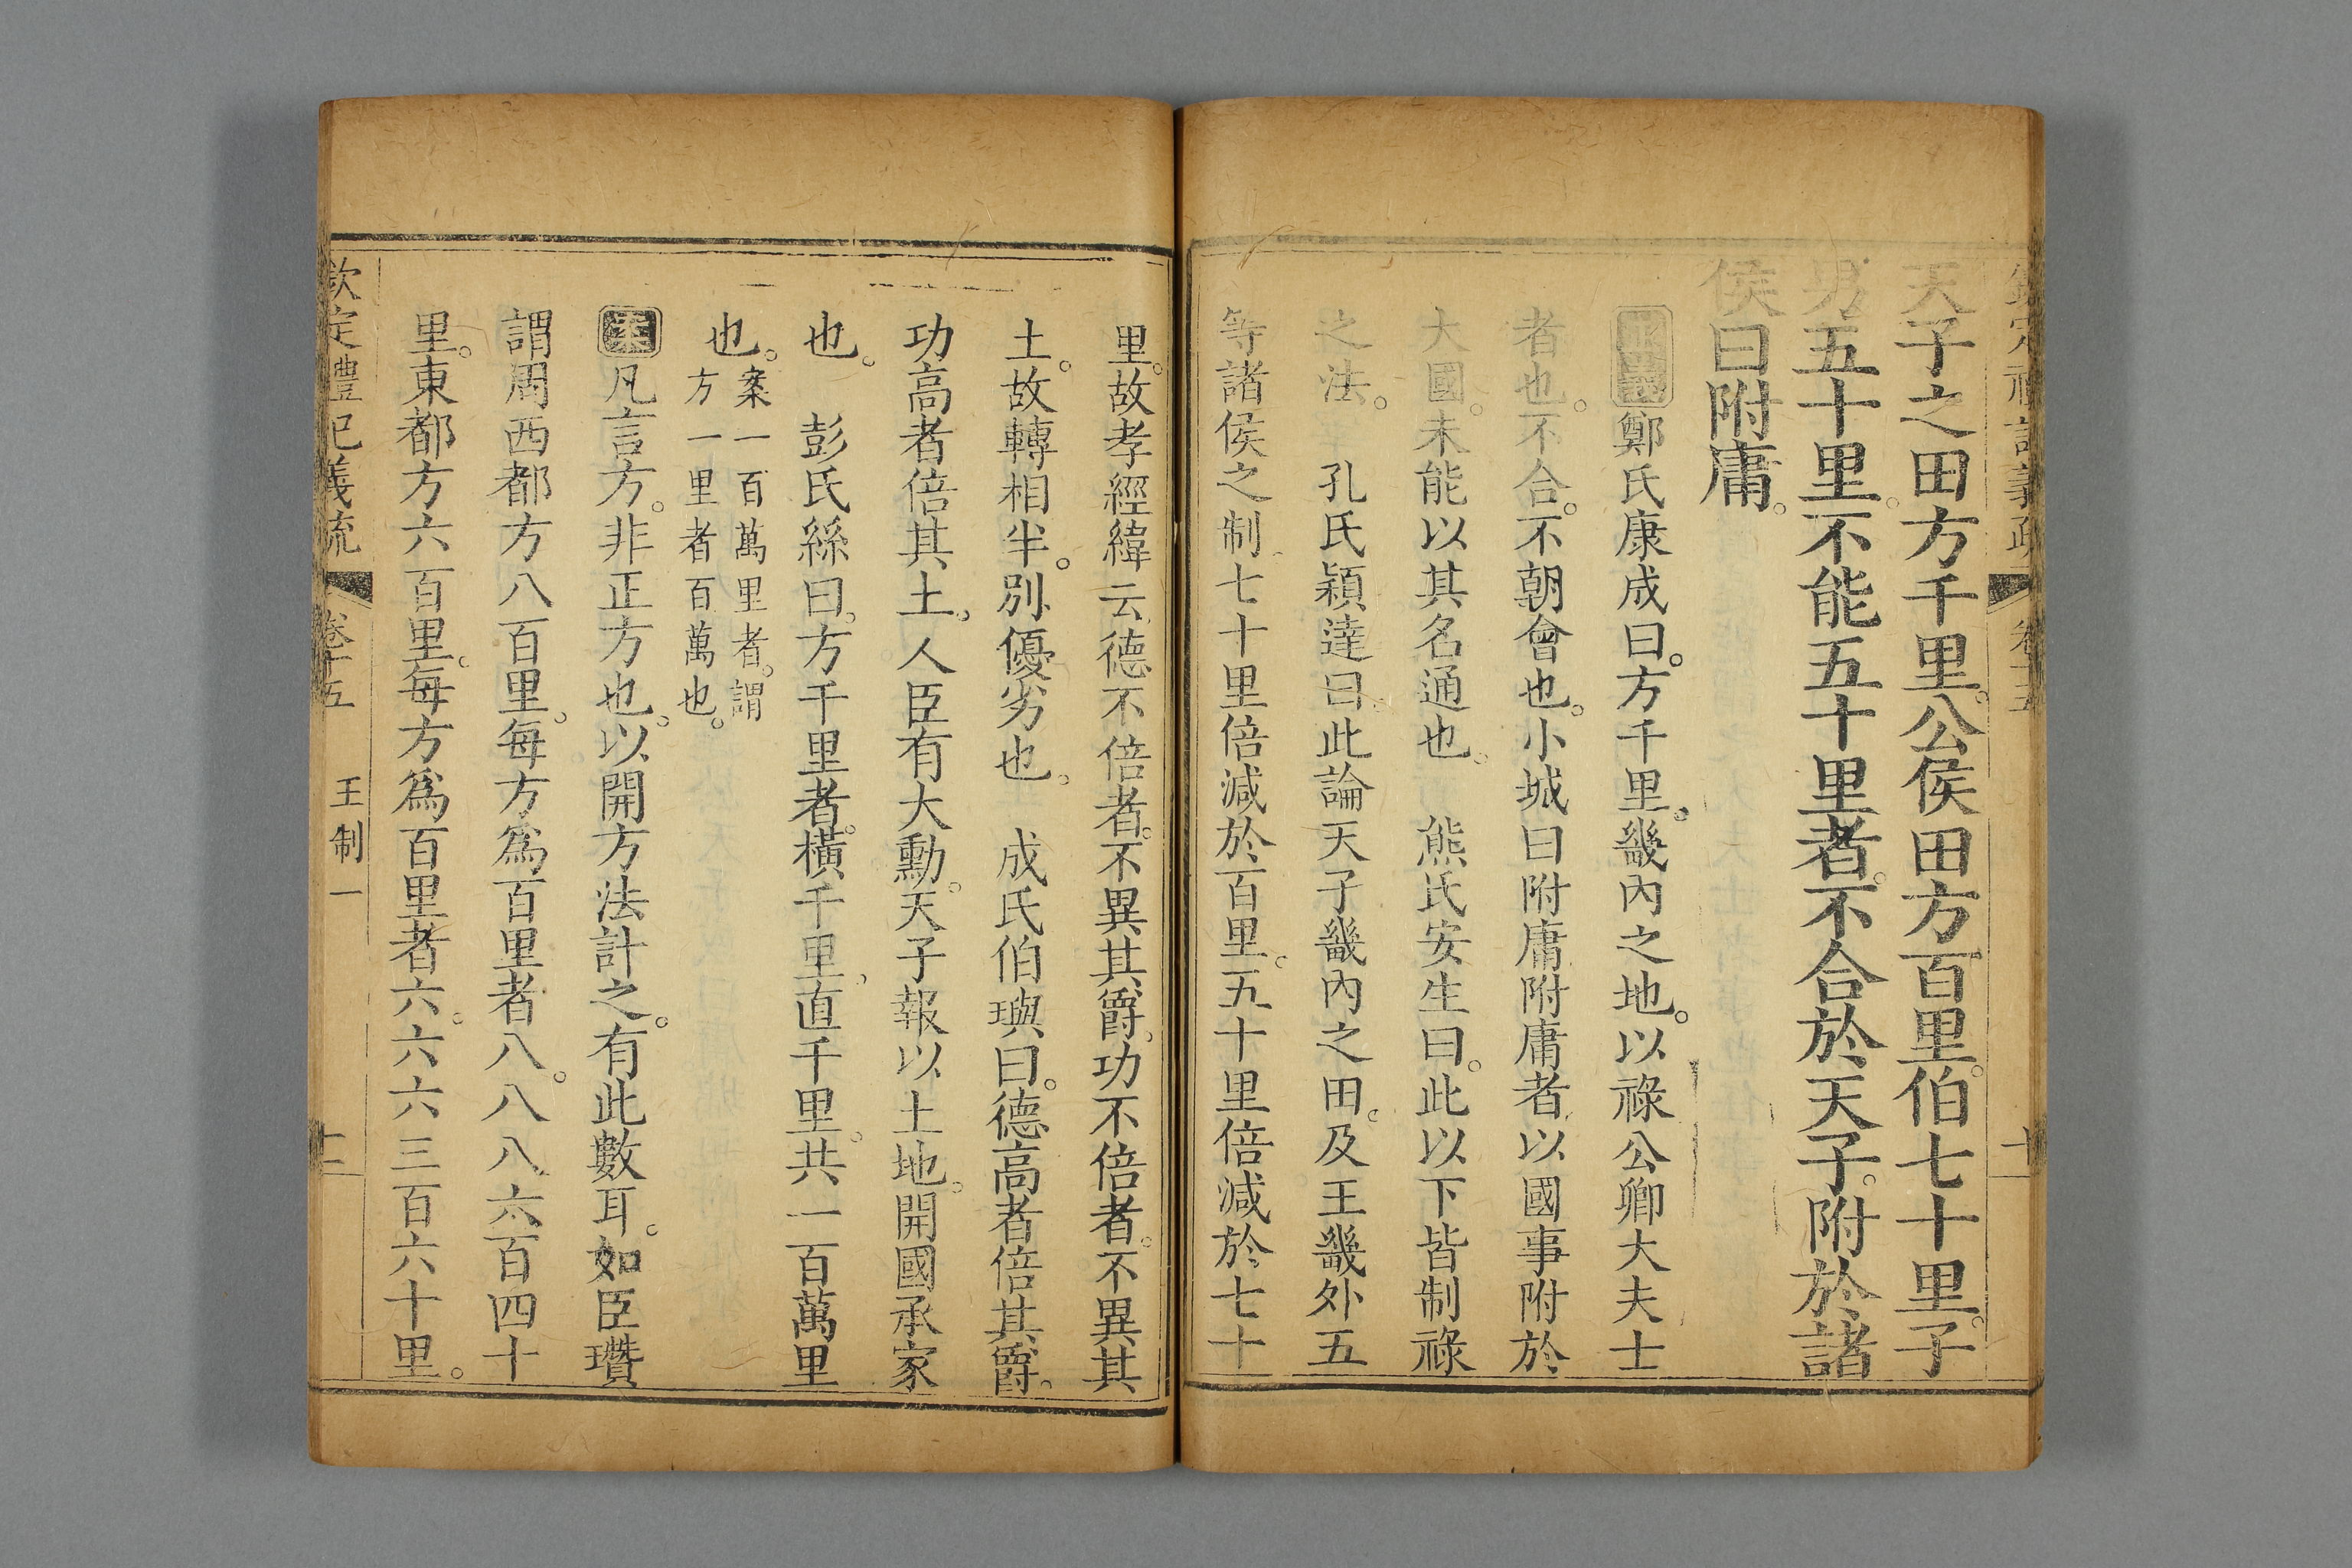 天子之田方千里。公侯田方百里。伯七十里。子
男五十里。不能五十里者。不合於天子。附於諸
侯曰附庸。
正義鄭氏康成曰。方千里。畿內之地。以祿公卿大夫士
者也。不合。不朝會也。小城曰附庸附庸者以國事附於
大國。未能以其名通也。 熊氏安生曰。此以下皆制祿
之法。 孔氏穎達曰。此論天子畿內之田。及王畿外五
等諸侯之制七十里倍減於百里。五十里倍減於七十
里。故孝經緯云德不倍者。不異其爵。功不倍者。不異其
土。故轉相半。別優劣也。 成氏伯璵曰。德高者倍其爵。
功高者倍其土。人臣有大勳。天子報以土地。開國承家
也。 彭氏絲曰。方千里者。橫千里。直千里。共一百萬里
也。案一百萬里者。謂
方一里者百萬也。
案凡言方。非正方也。以開方法計之。有此數耳。如臣瓚
謂周西都方八百里。每方為百里者八。八八六百四十
里。東都方六百里。每方為百里者六。六六三百六十里。
欽定禮記義疏 卷十五 王制一 十二